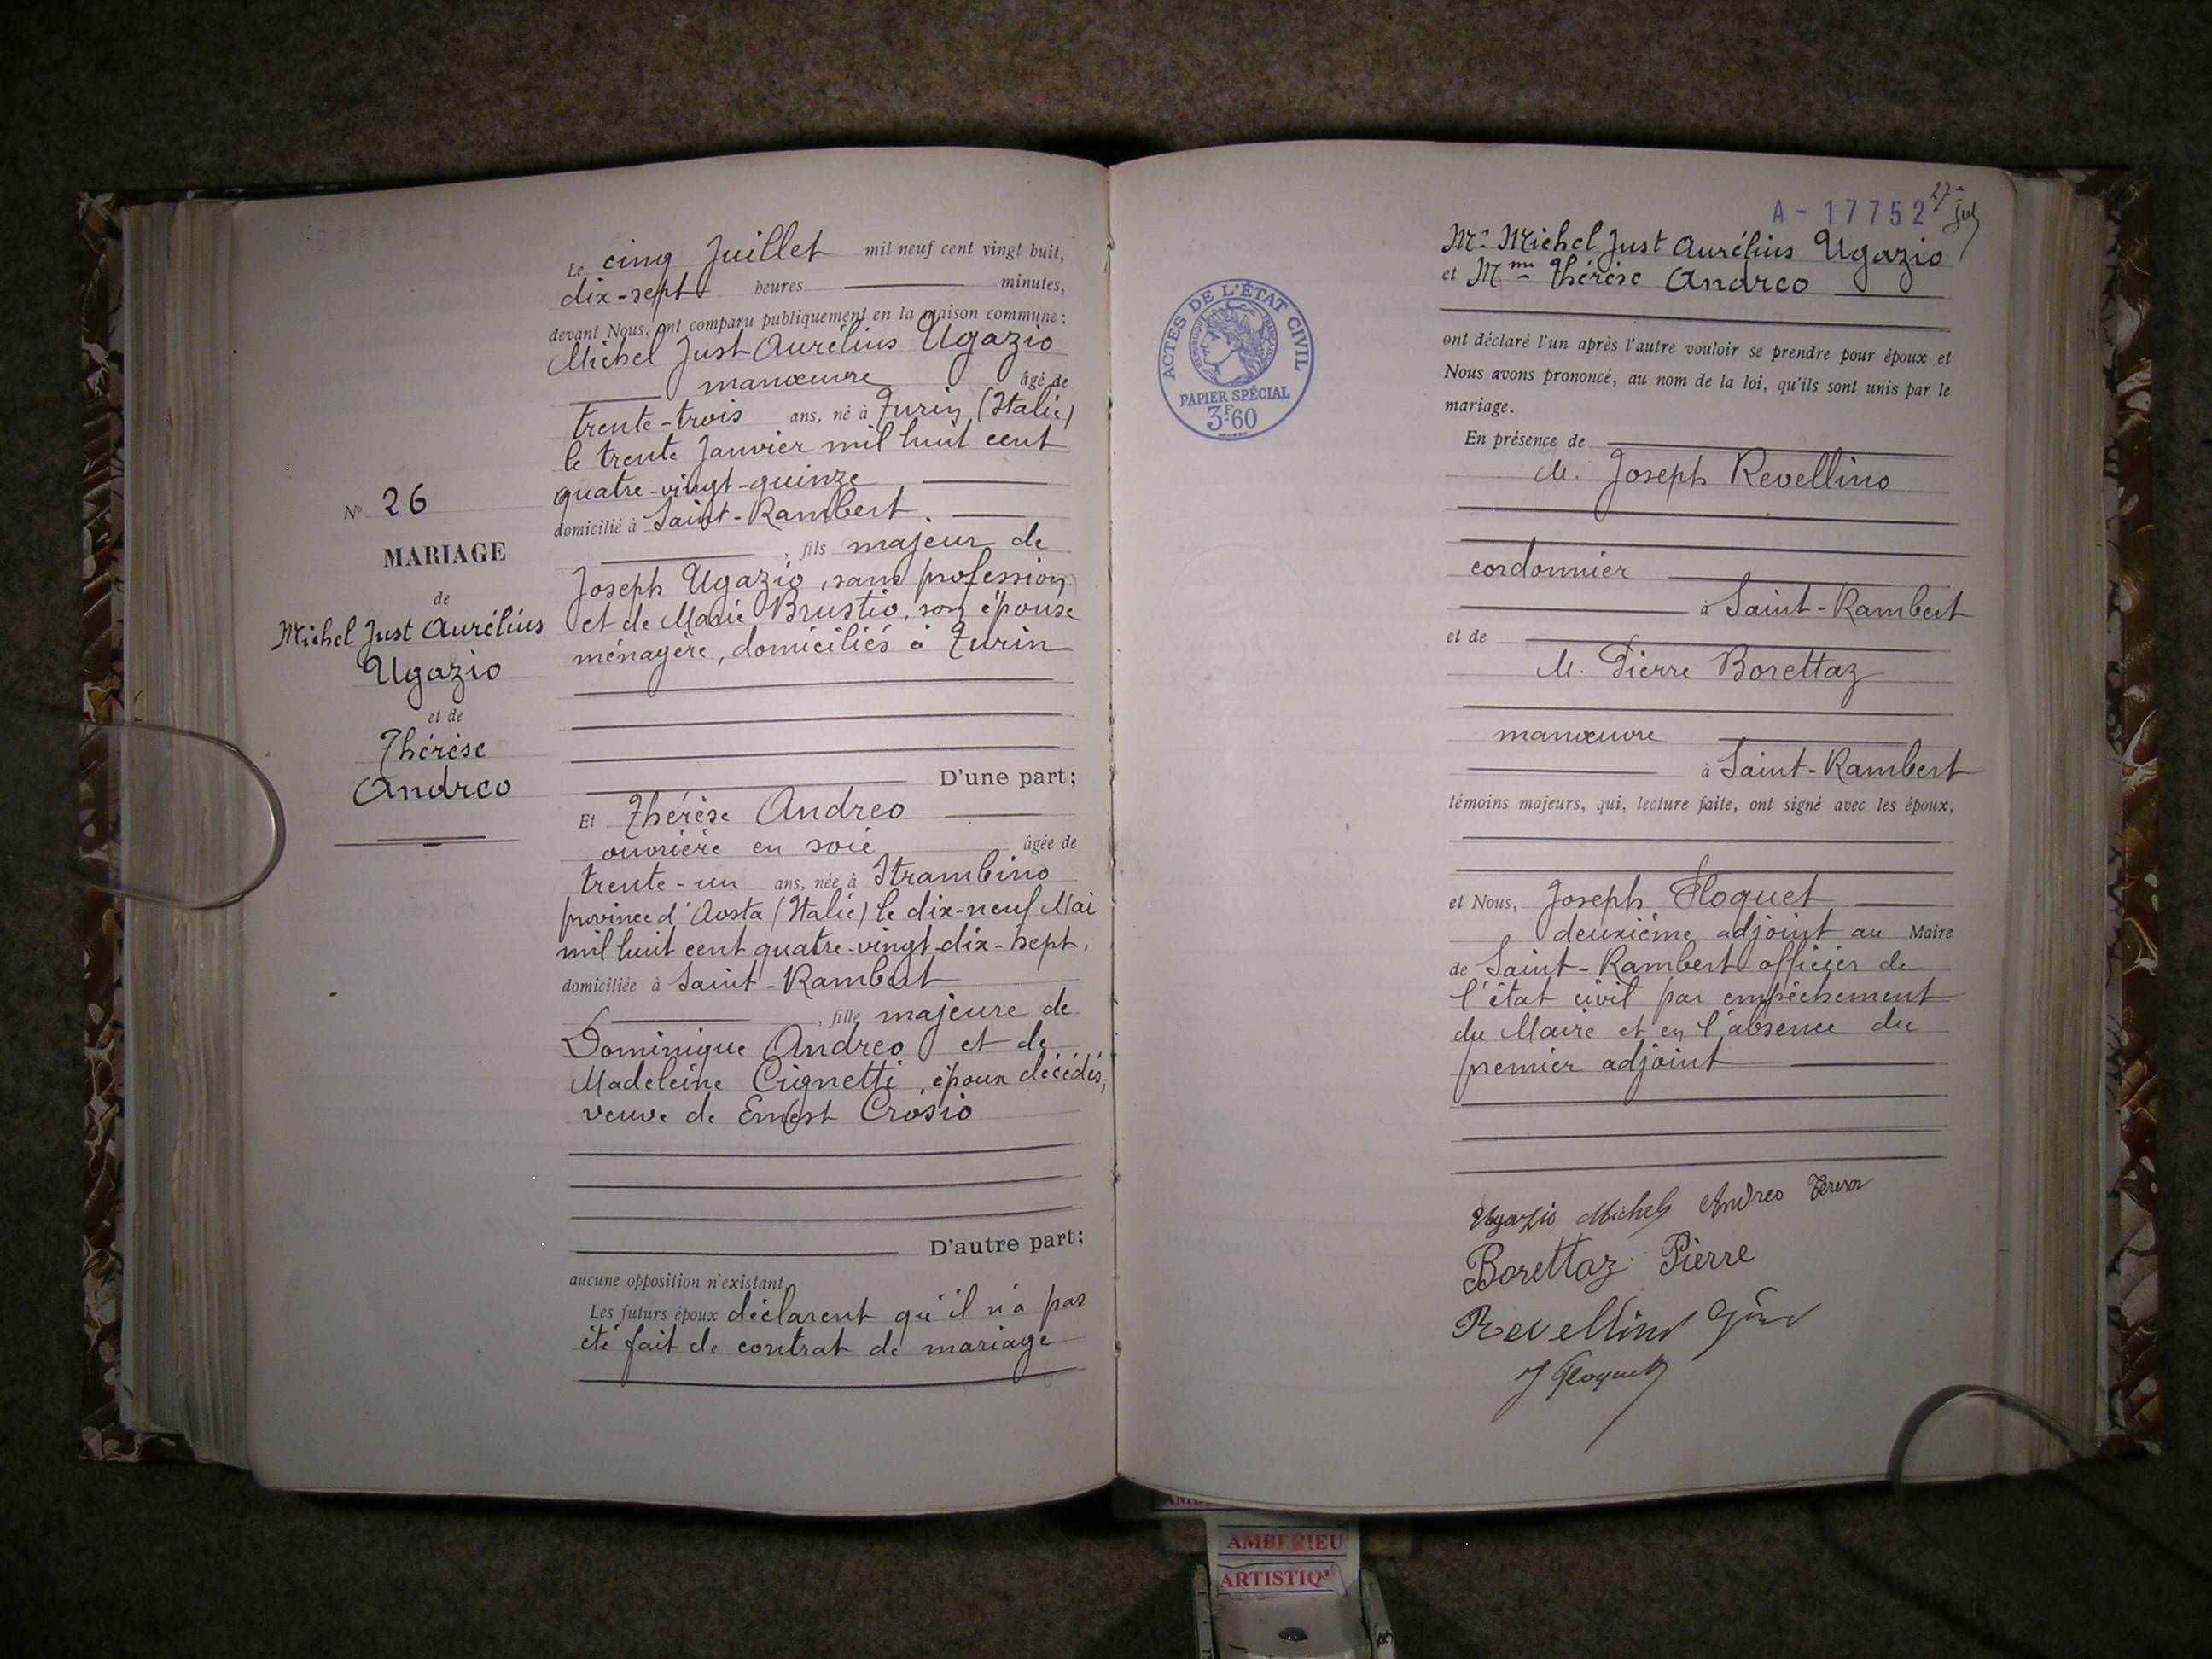 Le cinq Juillet mil neuf cent vingt huit,
dix-sept heures minutes,
devant Nous, ont comparu publiquement en la maison commune :
Michel Just Aurélius Ugazio
manœuvre âgé de
trente-trois ans, né à Turin (Italie)
le trente Janvier mil huit cent
quatre-vingt-quinze
domicilié à Saint-Rambert
, fils majeur de
Joseph Ugazio, sans profession
et de Marie Brustio, son épouse
ménagère, domiciliés à Turin
D'une part ;
Et Thérèse Andreo
ouvrière en soie âgée de
trente-un ans, née à Strambino
province d'Aosta (Italie) le dix-neuf Mai
mil huit cent quatre-vingt-dix-sept,
domiciliée à Saint-Rambert
, fille majeure de
Dominique Andreo et de
Madeleine Cignetti, époux décédés,
veuve de Ernest Crosio
D'autre part ;
aucune opposition n'existant
Les futurs époux déclarent qu'il n'a pas
été fait de contrat de mariage
N° 26
MARIAGE
de
Michel Just Aurélius
Ugazio
et de
Thérèse
Andreo
A - 17752
27
ACTES DE L'ÉTAT CIVIL
RÉPUBLIQUE FRANÇAISE
PAPIER SPÉCIAL
3F60
Mr Michel Just Aurélius Ugazio
et Mme Thérèse Andreo
ont déclaré l'un après l'autre vouloir se prendre pour époux et
Nous avons prononcé, au nom de la loi, qu'ils sont unis par le
mariage.
En présence de
M. Joseph Revellino
cordonnier
à Saint-Rambert
et de
M. Pierre Borettaz
manœuvre
à Saint-Rambert
témoins majeurs, qui, lecture faite, ont signé avec les époux,
et Nous, Joseph Floquet
deuxième adjoint au Maire
de Saint-Rambert officier de
l'état civil par empêchement
du Maire et en l'absence du
premier adjoint
Ugazio Michel Andreo Teresa
Borettaz Pierre
Revellino
J Floquet
AMBERIEU
ARTISTIQ